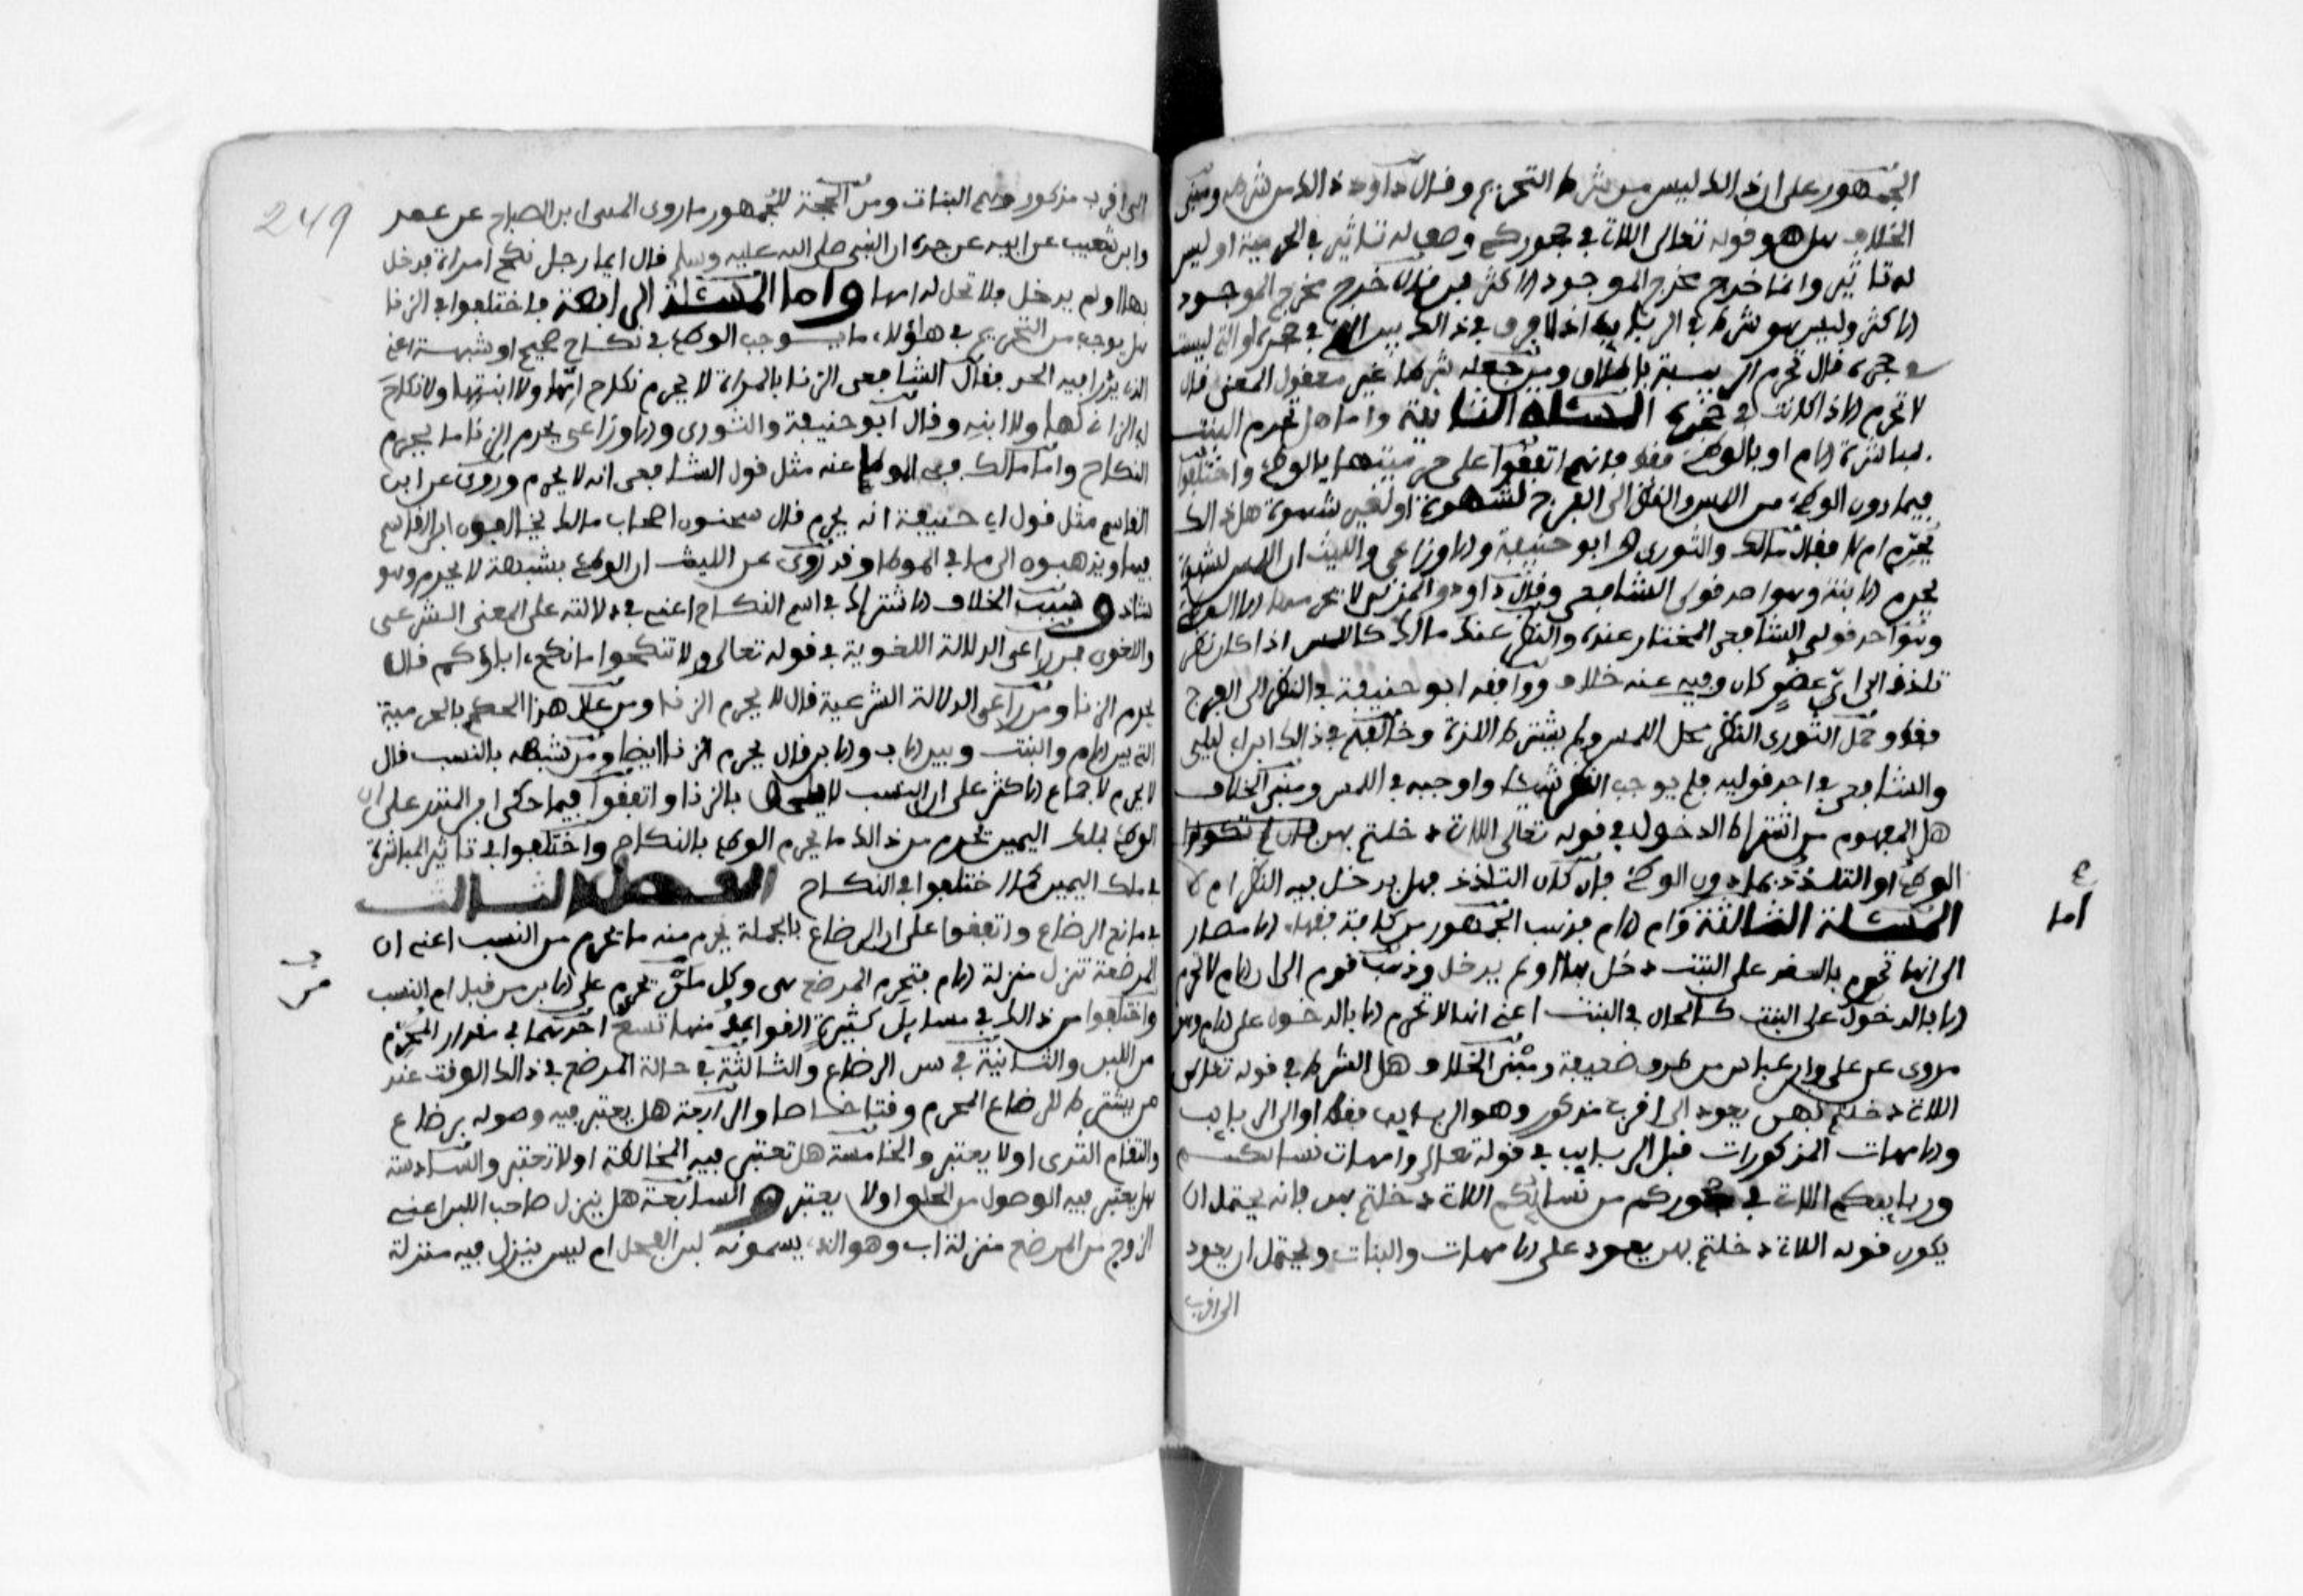 الجمهور على ان ذالك ليس من شرط التحريم وقال داوود ذالك من شرطه ومبنى
الخلاف هل هو قوله تعالى اللاتي في حجوركم وصف له تاثير في الحرمية او ليس
له تاثير وانما خرج مخرج الموجود الاكثر فمن قال خرج مخرج الموجود
الاكثر وليس هو شرط في الربايب اذ لا فرق في ذالك بين التي في حجره او التي ليست
في حجره قال تحرم الربيبة باطلاق ومن جعله شرطا غير معقول المعنى قال
لا تحرم الا اذا كانت في حجره المسئلة الثانية واما هل تحرم البنت
بمباشرة الام او بالوطء فقط فانهم اتفقوا على حرميتها بالوطء واختلفوا
فيما دون الوطء من اللمس والنظر الى الفرج لشهوة او لغير شهوة هل ذالك
يحرم ام لا فقال مالك والثورى وابو حنيفة والاوزاعي والليث ان اللمس لشهوة
يحرم الابنة وهو احد قولى الشافعي وقال داود والمزنى لا يحرمها الا الوطء
وهو احد قولى الشافعي المختار عنده والنظر عند مالك كاللمس اذا كان نظر
تلذذ الى اي عضو كان وفيه عنه خلاف ووافقه ابو حنيفة في النظر الى الفرج
فقط وحمل الثورى النظر محل اللمس ولم يشترط اللذة وخالفهم في ذالك ابن ابي ليلى
والشافعي في احد قوليه فلم يوجب النظر شيئا واوجبه في اللمس ومبنى الخلاف
هل المفهوم من اشتراط الدخول في قوله تعالى اللاتي دخلتم بهن فان لم تكونوا
الوطء او التلذذ بما دون الوطء فان كان التلذذ فهل يدخل فيه النظر ام لا
المسئلة الثالثة وام الام فذهب الجمهور من كافة فقهاء الامصار
اما
الى انها تحرم بالعقد على البنت دخل بها او لم يدخل وذهب قوم الى ان الام لا تحرم
الا بالدخول على البنت كالحال في البنت اعنى انها لا تحرم الا بالدخول على الام وهو
مروى عن على وابن عباس من طرق ضعيفة ومبنى الخلاف هل الشرط في قوله تعالى
اللاتي دخلتم بهن يعود الى اقرب مذكور وهو الربايب فقط او الى الربايب
والامهات المذكورات قبل الربايب في قوله تعالى وامهات نسائكم
وربايبكم اللاتي في حجوركم من نسائكم اللاتي دخلتم بهن فانه يحتمل ان
يكون قوله اللاتي دخلتم بهن يعود على الامهات والبنات ويحتمل ان يعود
الى اقرب
249
الى اقرب مذكور وهم البنات ومن الحجة للجمهور ما روى المثنى ابن الصباح عن عمر
وابن شعيب عن ابيه عن جده ان النبى صلى الله عليه وسلم قال ايما رجل نكح امراة فدخل
بها او لم يدخل فلا تحل له امها واما المسئلة الرابعة فاختلفوا في الزنا
هل يوجب من التحريم في هاؤلاء ما يوجب الوطء في نكاح صحيح او شبهة اعنى
الذى يدرا فيه الحد فقال الشافعى الزنا بالمراة لا يحرم نكاح امها ولا ابنتها ولا نكاح
ابى الزانى لها ولا ابنه وقال ابو حنيفة والثورى والاوزاعى يحرم الزنا ما يحرم
النكاح واما مالك ففى الموطا عنه مثل قول الشافعى انه لا يحرم وروى عن ابن
القاسم مثل قول ابي حنيفة انه يحرم قال سحنون اصحاب مالك يخالفون ابن القاسم
فيها ويذهبون الى ما في الموطا وقد روى عن الليث ان الوطء بشبهة لا يحرم وهو
شاذ وسبب الخلاف الاشتراك في اسم النكاح اعنى في دلالته على المعنى الشرعى
واللغوى فمن راعى الدلالة اللغوية في قوله تعالى ولا تنكحوا ما نكح اباؤكم قال
يحرم الزنا ومن راعى الدلالة الشرعية قال لا يحرم الزنا ومن علل هذا الحكم بالحرمية
التى بين الام والبنت وبين الاب والابن قال يحرم الزنا ايضا ومن شبهه بالنسب قال
لا يحرم لاجماع الاكثر على ان النسب لا يلحق بالزنا واتفقوا فيما حكى ابن المنذر على ان
الوطء بملك اليمين يحرم من ذالك ما يحرم الوطء بالنكاح واختلفوا في تاثير المباشرة
في ملك اليمين كما اختلفوا في النكاح الفصل الثالث
في مانع الرضاع واتفقوا على ان الرضاع بالجملة يحرم منه ما يحرم من النسب اعنى ان
المرضعة تنزل منزلة الام فتحرم المرضع هى وكل من يحرم على الابن من قبل ام النسب
واختلفوا من ذالك في مسايل كثيرة القواعد منها تسع احدها في مقدار المحرم
من اللبن والثانية في سن الرضاع والثالثة في حالة المرضع في ذالك الوقت عند
من يشترط للرضاع المحرم وقتا خاصا والرابعة هل يعتبر فيه وصوله برضاع
والتقام الثدى او لا يعتبر والخامسة هل تعتبر فيه المخالطة او لا تعتبر والسادسة
هل يعتبر فيه الوصول من الحلق اولا يعتبر والسابعة هل ينزل صاحب اللبن اعنى
الزوج من المرضع منزلة اب وهو الذى يسمونه لبن الفحل ام ليس ينزل فيه منزلة